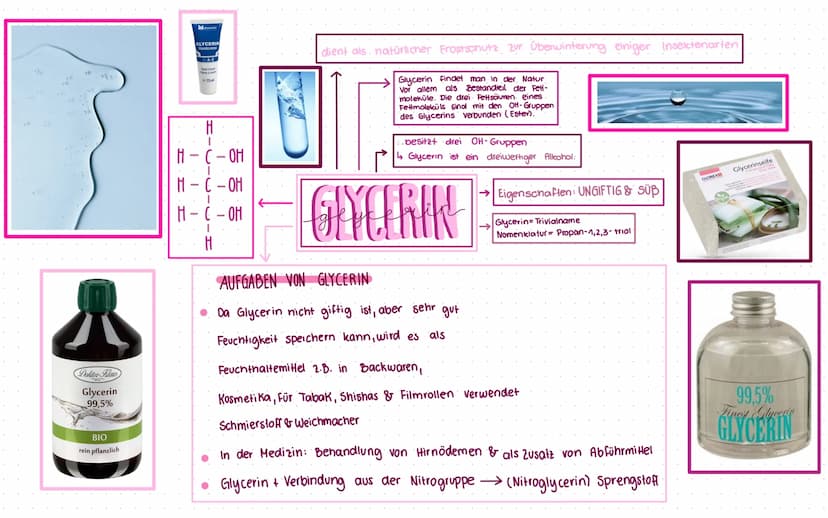 dient als natürlicher Frostschutz zur Überwinterung einiger Insektenarten
GLYCERIN
Glycerin findet man in der Natur
vor allem als Bestandteil der Fett-
moleküle. Die drei Fettsäuren eines
Fettmoleküls sind mit den OH-Gruppen
des Glycerins verbunden (Ester).
...besitzt drei OH-Gruppen
↳ Glycerin ist ein dreiwertiger Alkohol.
H
H - C - OH
H - C - OH
H - C - OH
H
GLYCERIN
glycerin
Eigenschaften: UNGIFTIG & SÜß
Glycerin = Trivialname
Nomenklatur = Propan-1,2,3-triol
Glycerinseife
AUFGABEN VON GLYCERIN
Da Glycerin nicht giftig ist, aber sehr gut
Feuchtigkeit speichern kann, wird es als
Feuchthaltemittel z.B. in Backwaren,
Kosmetika, für Tabak, Shishas & Filmrollen verwendet
Schmierstoff & Weichmacher
In der Medizin: Behandlung von Hirnödemen & als Zusatz von Abführmittel
Glycerin + Verbindung aus der Nitrogruppe → (Nitroglycerin) Sprengstoff
Doktor Klaus
Glycerin
99,5%
BIO
rein pflanzlich
99,5%
Finest Glycerin
GLYCERIN